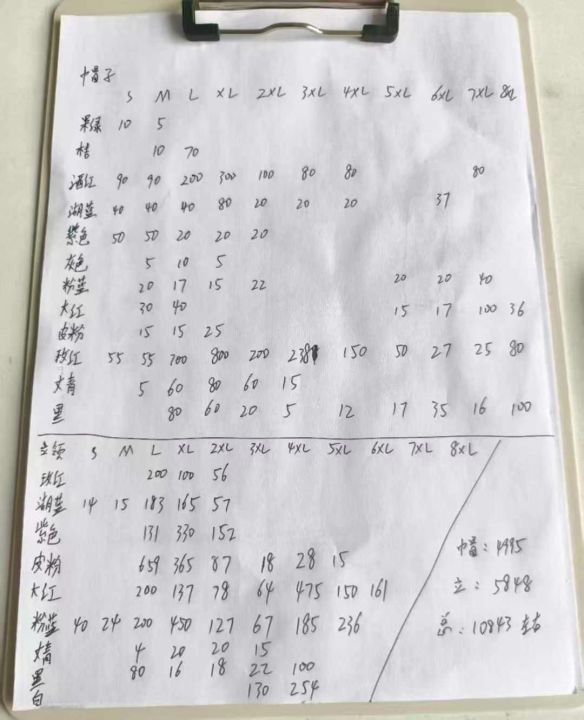 帽子
S M L XL 2XL 3XL 4XL 5XL 6XL 7XL 8XL
果绿 10 5
桔 10 70
酒红 90 90 200 300 100 80 80 80
湖蓝 40 40 40 80 20 20 20 37
紫色 50 50 20 20 20
灰色 5 10 5
粉蓝 20 17 15 22 20 20 40
大红 30 40 15 17 100 36
皮粉 15 15 25
玫红 55 55 700 800 200 238 150 50 27 25 80
丈青 5 60 80 60 15
黑 80 60 20 5 12 17 35 16 100
立领 S M L XL 2XL 3XL 4XL 5XL 6XL 7XL 8XL
玫红 200 100 56
湖蓝 14 15 183 165 57
紫色 131 330 152
皮粉 659 365 87 18 28 15
大红 200 137 78 64 475 150 161
粉蓝 40 24 200 450 127 67 185 236
丈青 4 20 20 15
黑 80 16 18 22 100
白 130 254
帽: 4995
立: 5848
总: 10843 左右